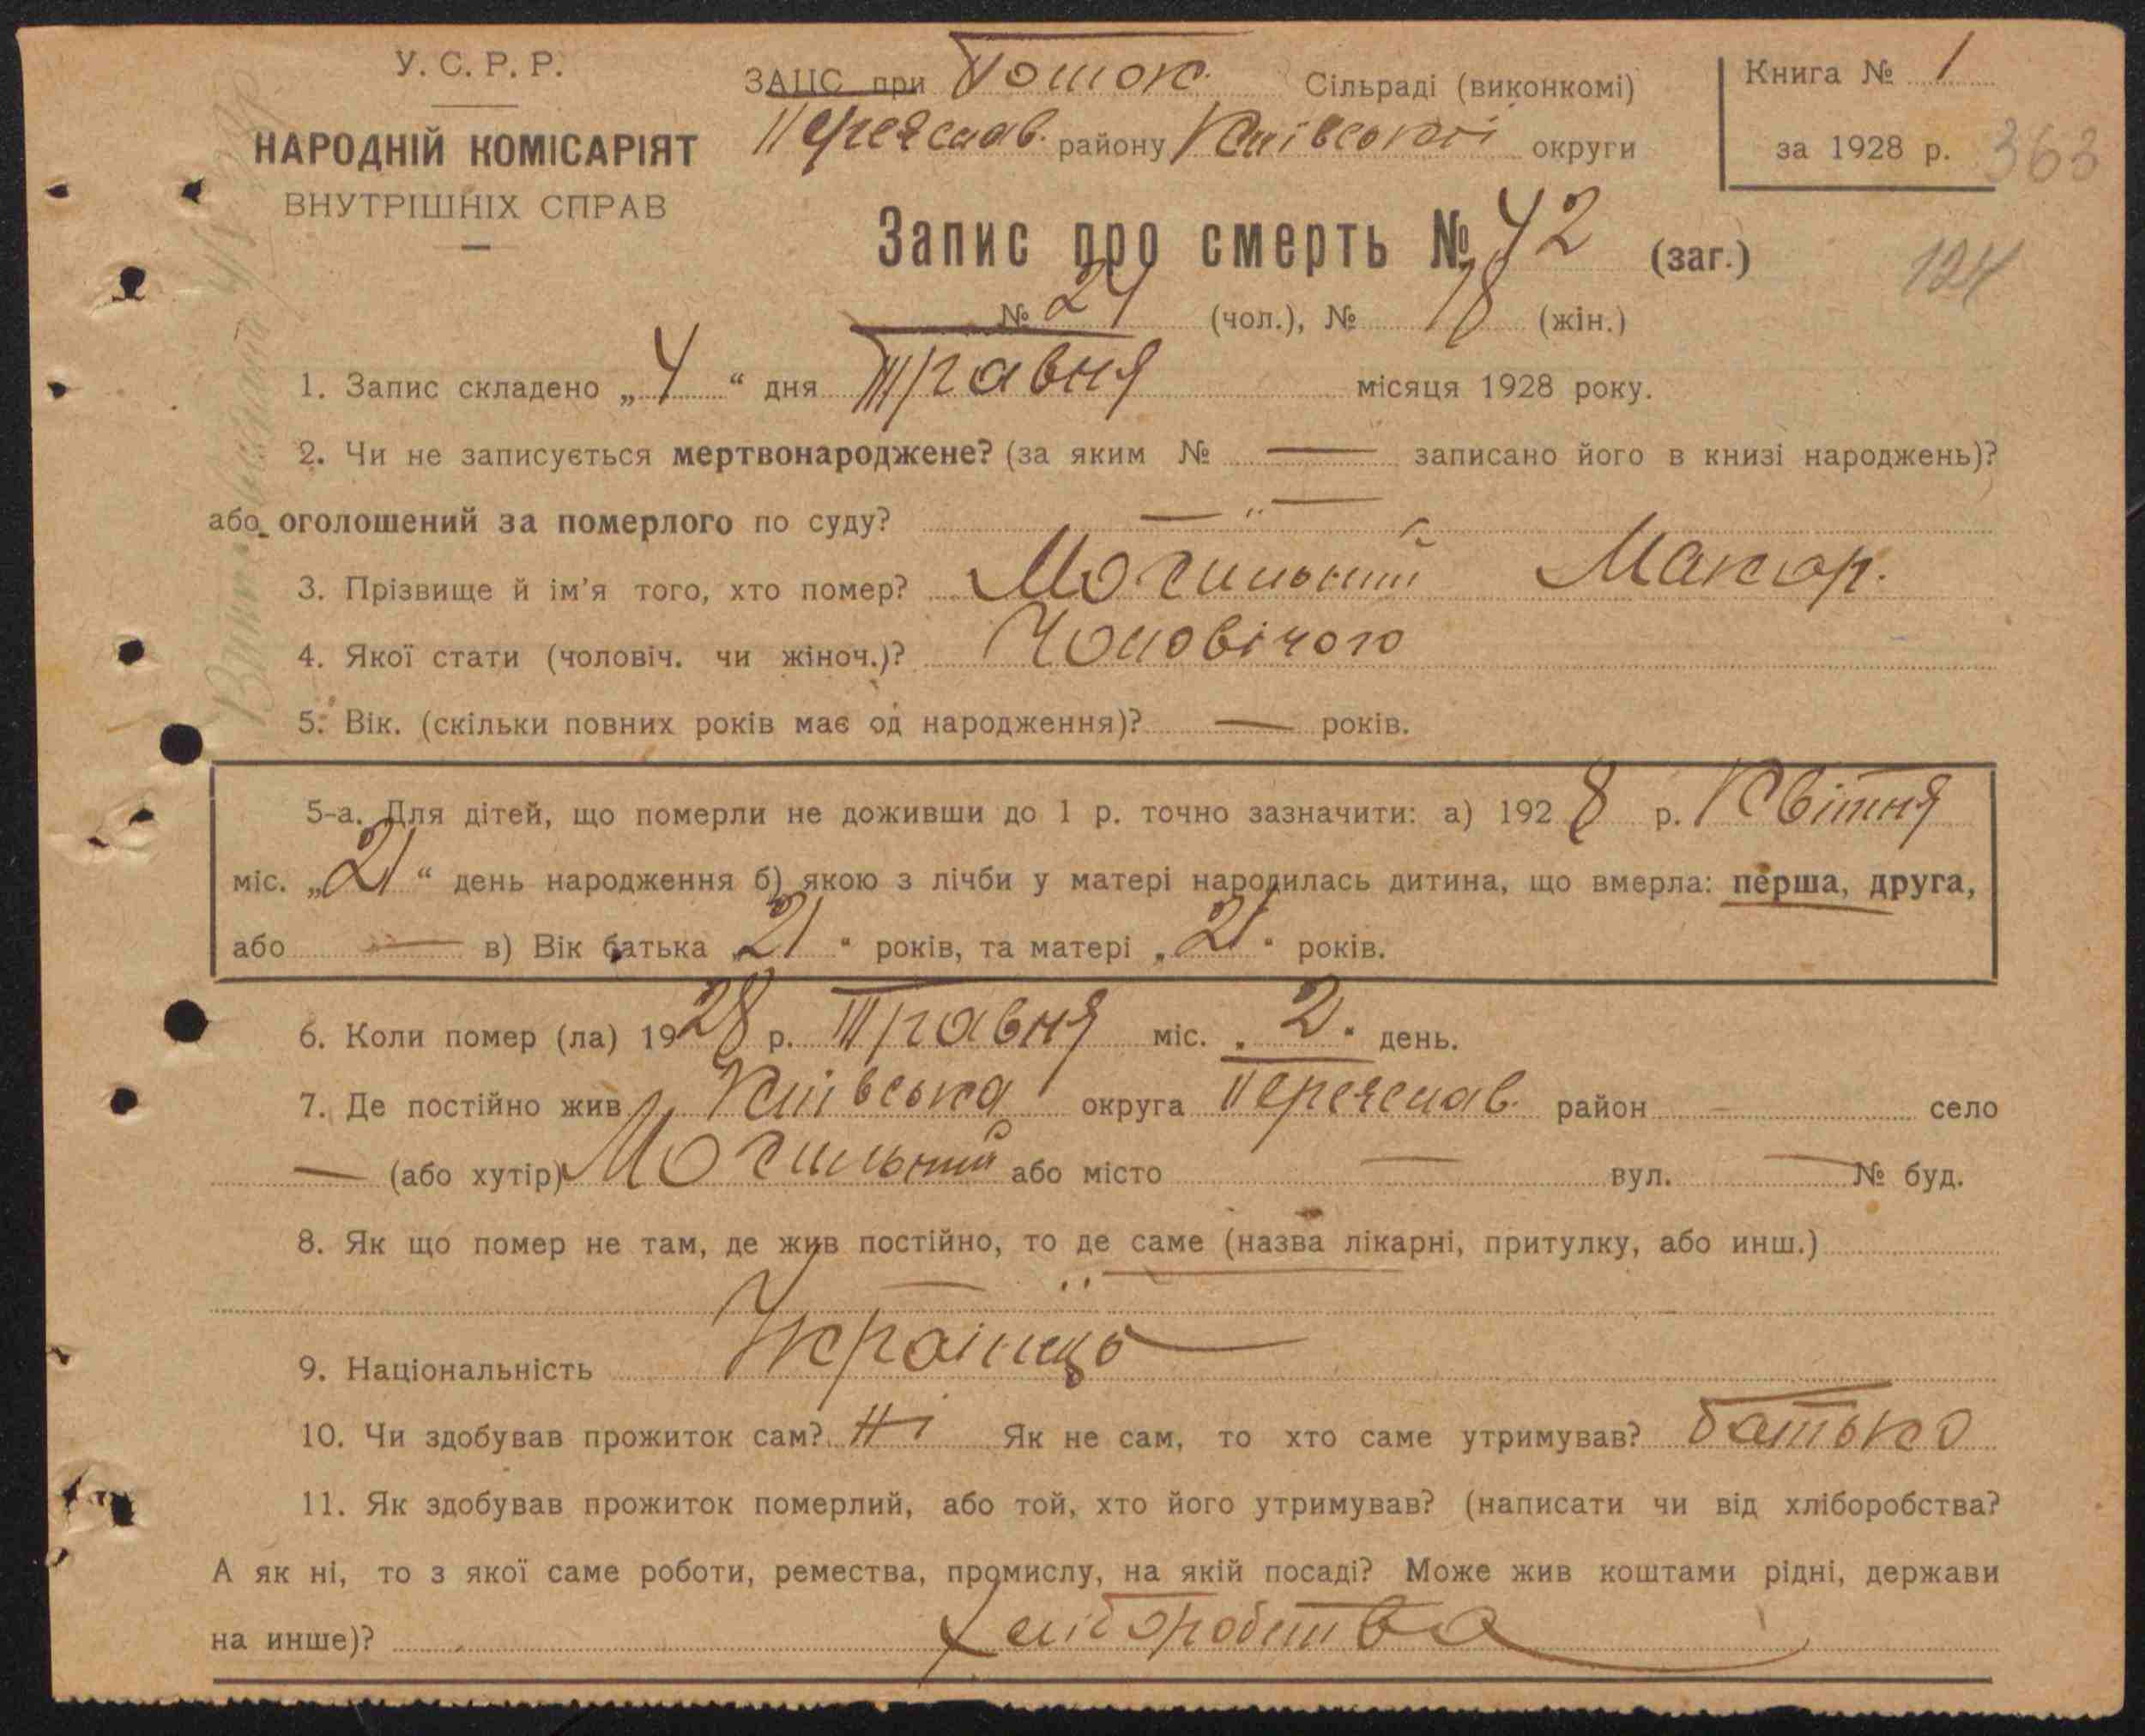 У. С. Р. Р.
НАРОДНІЙ КОМІСАРІЯТ
ВНУТРІШНІХ СПРАВ
ЗАЦС при Поток. Сільраді (виконкомі)
Переяслав. району Київської округи
Книга № 1
за 1928 р.
363
Запис про смерть № 42 (заг.)
124
№ 24 (чол.), № 18 (жін.)
1. Запис складено „ 4 “ дня Травня місяця 1928 року.
2. Чи не записується мертвонароджене? (за яким № — записано його в книзі народжень)?
або оголошений за померлого по суду? — „ —
3. Прізвище й ім'я того, хто помер? Могильний Макар.
4. Якої стати (чоловіч. чи жіноч.)? Чоловічого
5. Вік. (скільки повних років має од народження)? — років.
5-а. Для дітей, що померли не доживши до 1 р. точно зазначити: а) 1928 р. Квітня
міс. „21“ день народження б) якою з лічби у матері народилась дитина, що вмерла: перша, друга,
або — в) Вік батька „21“ років, та матері „21“ років.
6. Коли помер (ла) 1928 р. Травня міс. „2“ день.
7. Де постійно жив Київська округа Переяслав. район — село
— (або хутір) Могильний або місто — вул. — № буд.
8. Як що помер не там, де жив постійно, то де саме (назва лікарні, притулку, або инш.)
— „ —
9. Національність Українець
10. Чи здобував прожиток сам? Ні Як не сам, то хто саме утримував? батько
11. Як здобував прожиток померлий, або той, хто його утримував? (написати чи від хліборобства?
А як ні, то з якої саме роботи, ремества, промислу, на якій посаді? Може жив коштами рідні, держави
на инше)? Хліборобства